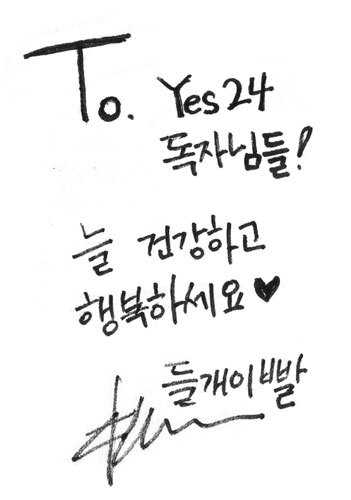 To. Yes24
독자님들!
늘 건강하고
행복하세요♥
들개이빨